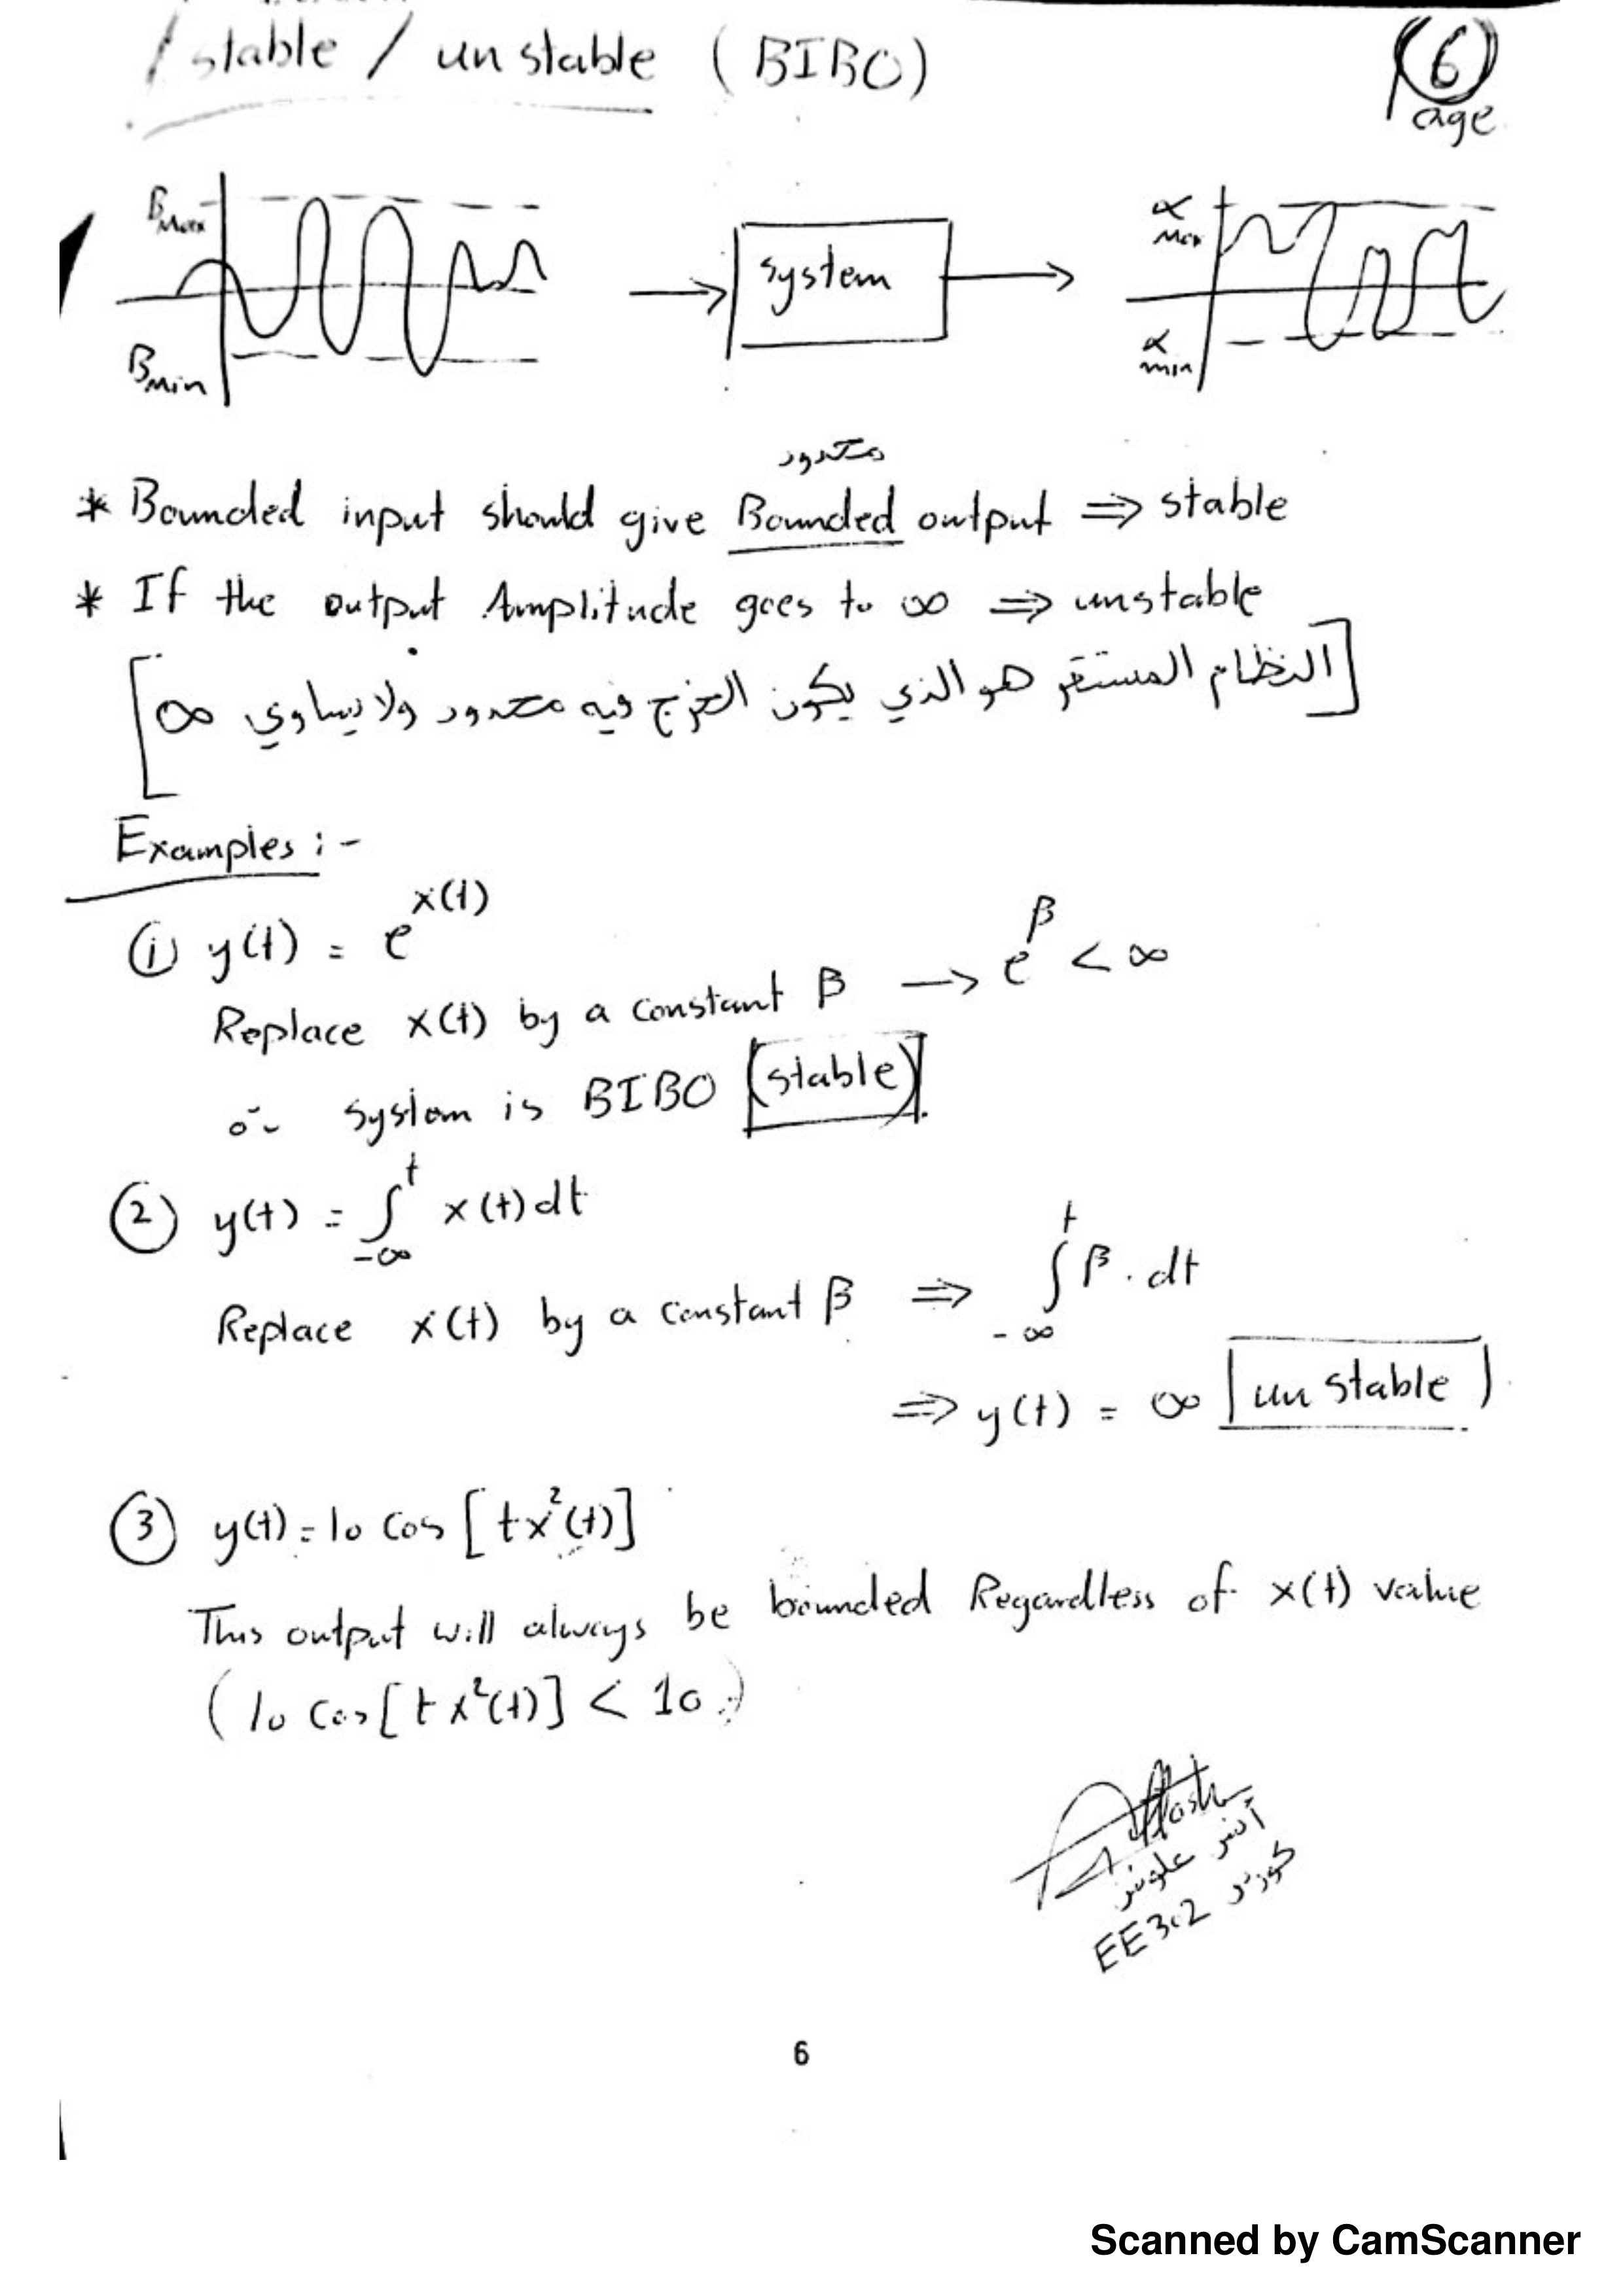 / stable / unstable (BIBO)
(6)
Page
BMax
BMin
system
α Max
α min
محدود
* Bounded input should give Bounded output ⇒ stable
* If the output Amplitude goes to ∞ ⇒ unstable
[النظام المستقر هو الذي يكون الخرج فيه محدود ولا يساوي ∞]
Examples :-
① y(t) = e^x(t)
Replace x(t) by a constant β → e^β < ∞
∴ system is BIBO (stable)
② y(t) = ∫_-∞^t x(t) dt
Replace x(t) by a constant β ⇒ ∫_-∞^t β . dt
⇒ y(t) = ∞ unstable
③ y(t) = 10 Cos [t x²(t)]
This output will always be bounded Regardless of x(t) value
(10 Cos [t x²(t)] < 10)
أنس علوش
كورس EE302
6
Scanned by CamScanner